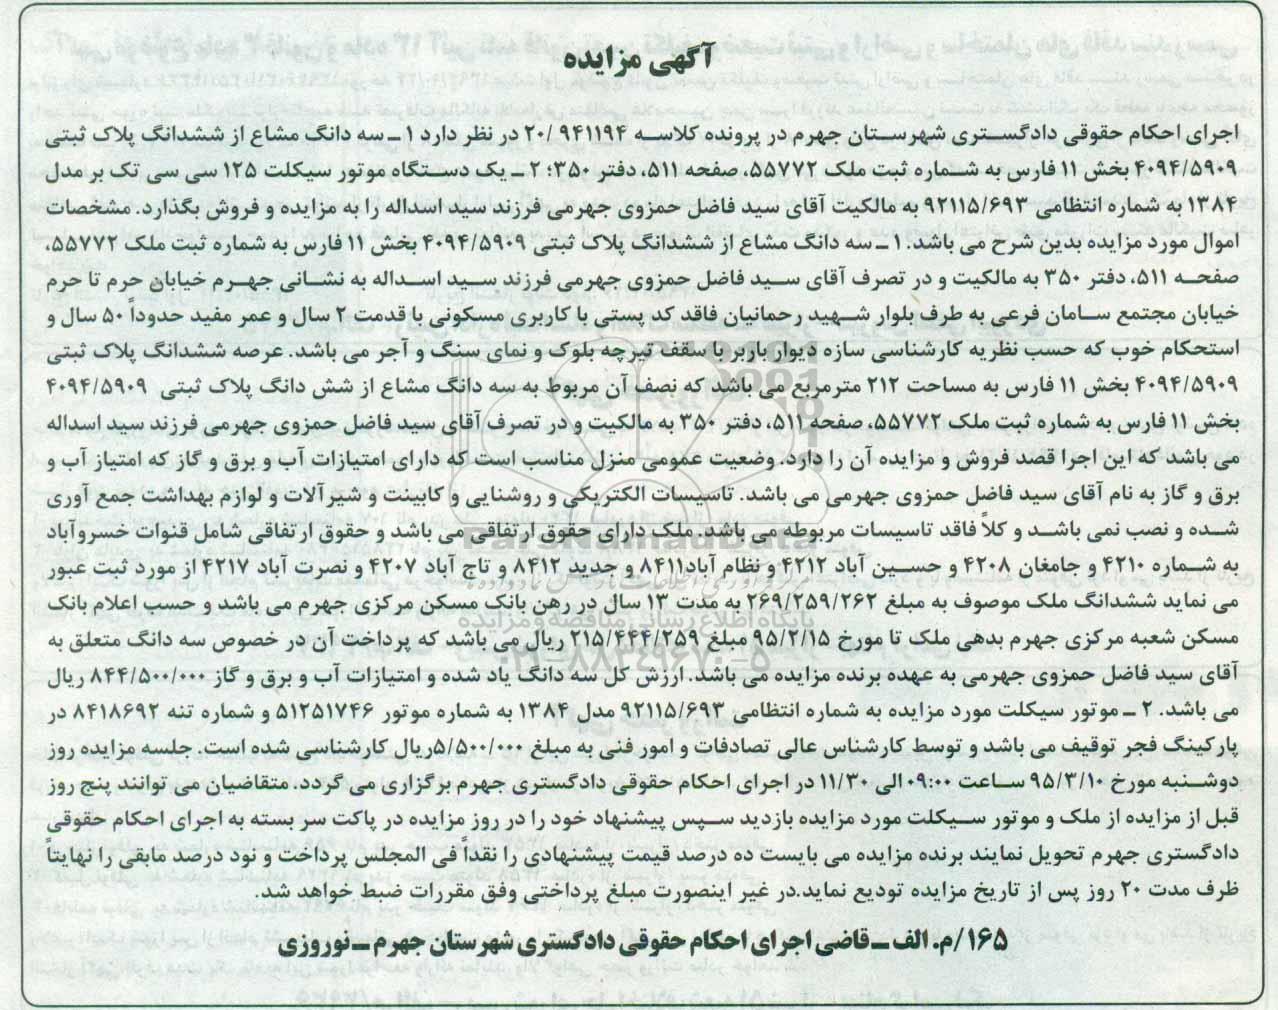 آگهی مزایده
اجرای احکام حقوقی دادگستری شهرستان جهرم در پرونده کلاسه ۹۴۱۱۹۴ /۲۰ در نظر دارد ۱ ـ سه دانگ مشاع از ششدانگ پلاک ثبتی
۴۰۹۴/۵۹۰۹ بخش ۱۱ فارس به شماره ثبت ملک ۵۵۷۷۲، صفحه ۵۱۱، دفتر ۳۵۰؛ ۲ ـ یک دستگاه موتور سیکلت ۱۲۵ سی سی تک بر مدل
۱۳۸۴ به شماره انتظامی ۹۲۱۱۵/۶۹۳ به مالکیت آقای سید فاضل حمزوی جهرمی فرزند سید اسداله را به مزایده و فروش بگذارد. مشخصات
اموال مورد مزایده بدین شرح می باشد. ۱ ـ سه دانگ مشاع از ششدانگ پلاک ثبتی ۴۰۹۴/۵۹۰۹ بخش ۱۱ فارس به شماره ثبت ملک ۵۵۷۷۲،
صفحه ۵۱۱، دفتر ۳۵۰ به مالکیت و در تصرف آقای سید فاضل حمزوی جهرمی فرزند سید اسداله به نشانی جهرم خیابان حرم تا حرم
خیابان مجتمع سامان فرعی به طرف بلوار شهید رحمانیان فاقد کد پستی با کاربری مسکونی با قدمت ۲ سال و عمر مفید حدوداً ۵۰ سال و
استحکام خوب که حسب نظریه کارشناسی سازه دیوار باربر با سقف تیرچه بلوک و نمای سنگ و آجر می باشد. عرصه ششدانگ پلاک ثبتی
۴۰۹۴/۵۹۰۹ بخش ۱۱ فارس به مساحت ۲۱۲ مترمربع می باشد که نصف آن مربوط به سه دانگ مشاع از شش دانگ پلاک ثبتی ۴۰۹۴/۵۹۰۹
بخش ۱۱ فارس به شماره ثبت ملک ۵۵۷۷۲، صفحه ۵۱۱، دفتر ۳۵۰ به مالکیت و در تصرف آقای سید فاضل حمزوی جهرمی فرزند سید اسداله
می باشد که این اجرا قصد فروش و مزایده آن را دارد. وضعیت عمومی منزل مناسب است که دارای امتیازات آب و برق و گاز که امتیاز آب و
برق و گاز به نام آقای سید فاضل حمزوی جهرمی می باشد. تاسیسات الکتریکی و روشنایی و کابینت و شیر آلات و لوازم بهداشت جمع آوری
شده و نصب نمی باشد و کلاً فاقد تاسیسات مربوطه می باشد. ملک دارای حقوق ارتفاقی می باشد و حقوق ارتفاقی شامل قنوات خسروآباد
به شماره ۴۲۱۰ و جامغان ۴۲۰۸ و حسین آباد ۴۲۱۲ و نظام آباد۸۴۱۱ و جدید ۸۴۱۲ و تاج آباد ۴۲۰۷ و نصرت آباد ۴۲۱۷ از مورد ثبت عبور
می نماید ششدانگ ملک موصوف به مبلغ ۲۶۹/۲۵۹/۲۶۲ به مدت ۱۳ سال در رهن بانک مسکن مرکزی جهرم می باشد و حسب اعلام بانک
مسکن شعبه مرکزی جهرم بدهی ملک تا مورخ ۹۵/۲/۱۵ مبلغ ۲۱۵/۴۴۴/۲۵۹ ریال می باشد که پرداخت آن در خصوص سه دانگ متعلق به
آقای سید فاضل حمزوی جهرمی به عهده برنده مزایده می باشد. ارزش کل سه دانگ یاد شده و امتیازات آب و برق و گاز ۸۴۴/۵۰۰/۰۰۰ ریال
می باشد. ۲ ـ موتور سیکلت مورد مزایده به شماره انتظامی ۹۲۱۱۵/۶۹۳ مدل ۱۳۸۴ به شماره موتور ۵۱۲۵۱۷۴۶ و شماره تنه ۸۴۱۸۶۹۲ در
پارکینگ فجر توقیف می باشد و توسط کارشناس عالی تصادفات و امور فنی به مبلغ ۵/۵۰۰/۰۰۰ریال کارشناسی شده است. جلسه مزایده روز
دوشنبه مورخ ۹۵/۳/۱۰ ساعت ۰۹:۰۰ الی ۱۱/۳۰ در اجرای احکام حقوقی دادگستری جهرم برگزاری می گردد. متقاضیان می توانند پنج روز
قبل از مزایده از ملک و موتور سیکلت مورد مزایده بازدید سپس پیشنهاد خود را در روز مزایده در پاکت سر بسته به اجرای احکام حقوقی
دادگستری جهرم تحویل نمایند برنده مزایده می بایست ده درصد قیمت پیشنهادی را نقداً فی المجلس پرداخت و نود درصد مابقی را نهایتاً
ظرف مدت ۲۰ روز پس از تاریخ مزایده تودیع نماید.در غیر اینصورت مبلغ پرداختی وفق مقررات ضبط خواهد شد.
۱۶۵ /م. الف ـ قاضی اجرای احکام حقوقی دادگستری شهرستان جهرم ـ نوروزی
ParsNamadData
پایگاه اطلاع رسانی مناقصه و مزایده
۰۲۱-۸۸۳۴۹۶۷۰-۵